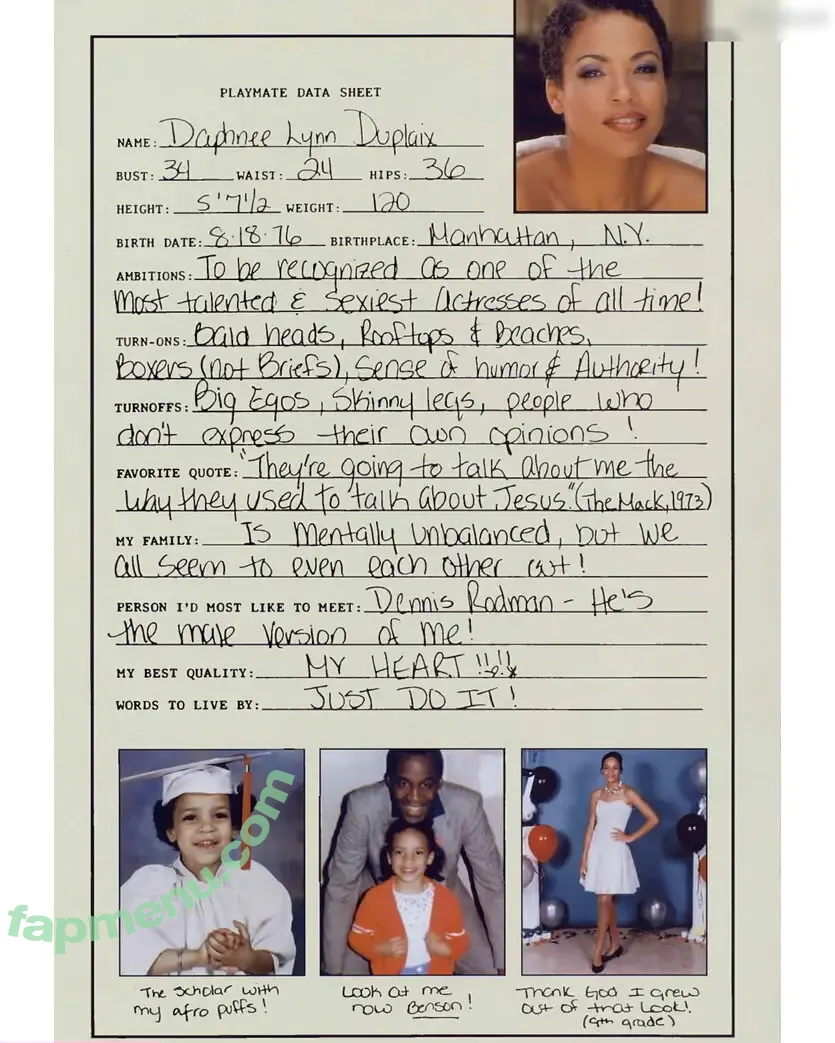 PLAYMATE DATA SHEET
NAME: Daphnee Lynn Duplaix
BUST: 34 WAIST: 24 HIPS: 36
HEIGHT: 5'7 1/2 WEIGHT: 120
BIRTH DATE: 8·18·76 BIRTHPLACE: Manhattan, N.Y.
AMBITIONS: To be recognized as one of the
most talented & sexiest actresses of all time!
TURN-ONS: Bald heads, Rooftops & Beaches,
Boxers (not Briefs), Sense of humor & Authority!
TURNOFFS: Big Egos, Skinny legs, people who
don't express their own opinions!
FAVORITE QUOTE: "They're going to talk about me the
way they used to talk about Jesus." (The Mack, 1973)
MY FAMILY: Is Mentally Unbalanced, but we
all seem to even each other out!
PERSON I'D MOST LIKE TO MEET: Dennis Rodman - He's
the male version of me!
MY BEST QUALITY: MY HEART!!!!
WORDS TO LIVE BY: JUST DO IT!
fapmenu.com
The scholar with
my afro puffs!
Look at me
now Benson!
Thank God I grew
out of that look!
(9th grade)